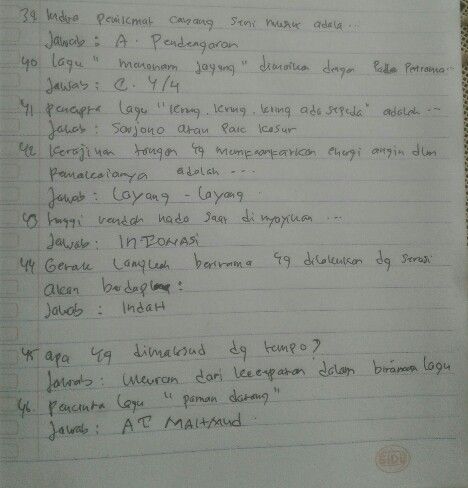 39 Indra penikmat cabang seni musik adala...
Jawab : A. Pendengaran
40 lagu "menanam jagung" dimainkan dengan Pola irama...
Jawab : C. 4/4
41 pencipta lagu "kring, kring, kring ada sepeda" adalah...
Jawab : Soerjono atau Pak Kasur
42 kerajinan tangan yg memanfaatkan energi angin dlm
Pemakaianya adalah ...
Jawab : Layang - layang
43 tinggi rendah nada saat dinyayikan ...
Jawab : INTONASI
44 Gerak langkah berirama yg dilakukan dg serasi
akan berdapa :
Jawab : IndaH
45 apa yg dimaksud dg tempo?
Jawab : ukuran dari kecepatan dalam birama lagu
46 Pencipta lagu "paman datang"
Jawab : AT MAHmud
SIDU